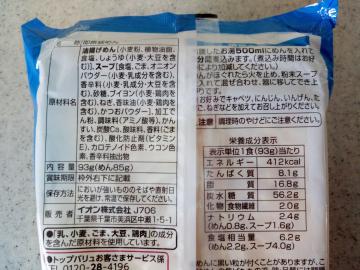 油揚げめん(小麦粉、植物油脂、
食塩、しょうゆ(小麦・大豆を含
む))、スープ(食塩、ごま、オニオン
パウダー(小麦・乳成分を含む)、
香辛料(小麦・乳成分・大豆を含
む)、砂糖、ブイヨン(小麦・鶏肉を
含む)、ねぎ、香味油(小麦・鶏肉を
含む)、かつおパウダー)、加工で
ん粉、調味料(アミノ酸等)、かんす
い、炭酸Ca、酸味料、香料(ごまを
含む)、酸化防止剤(ビタミン
E)、カロテノイド色素、ウコン色
素、香辛料抽出物
原材料名
内容量 93g(めん85g)
賞味期限 枠外右下に記載
保存方法 においが強いもののそば及び直射日
光を避け、常温で保存してください
販売者 イオン株式会社 J706
千葉県千葉市美浜区中瀬1-5-1
●「乳、小麦、ごま、大豆、鶏肉」を
含んだ原材料を使用しています。
●トップバリュお客さまサービス係
TEL 0120-28-4196
お湯500mlにめんを入れて
分間煮込みます。(煮込み時間はお好
により加減してください。)
がほぐれたら火を止め、粉末スープ
て混ぜ合わせ、器に移してでき上
ります。
お好みでキャベツ、にんじん、いんげん、たま
ご、ねぎなどを加えてお召し上がりください。
注意 調理時のやけどにご注意ください。
栄養成分表示
表示単位1食(93g)当たり
エネルギー 412kcal
たんぱく質 8.1g
脂質 16.8g
炭水化物 糖質 56.2g
食物繊維 2.0g
ナトリウム 2.4g
(めん0.8g、スープ1.6g)
食塩相当量 6.2g
(めん2.2g、スープ4.0g)